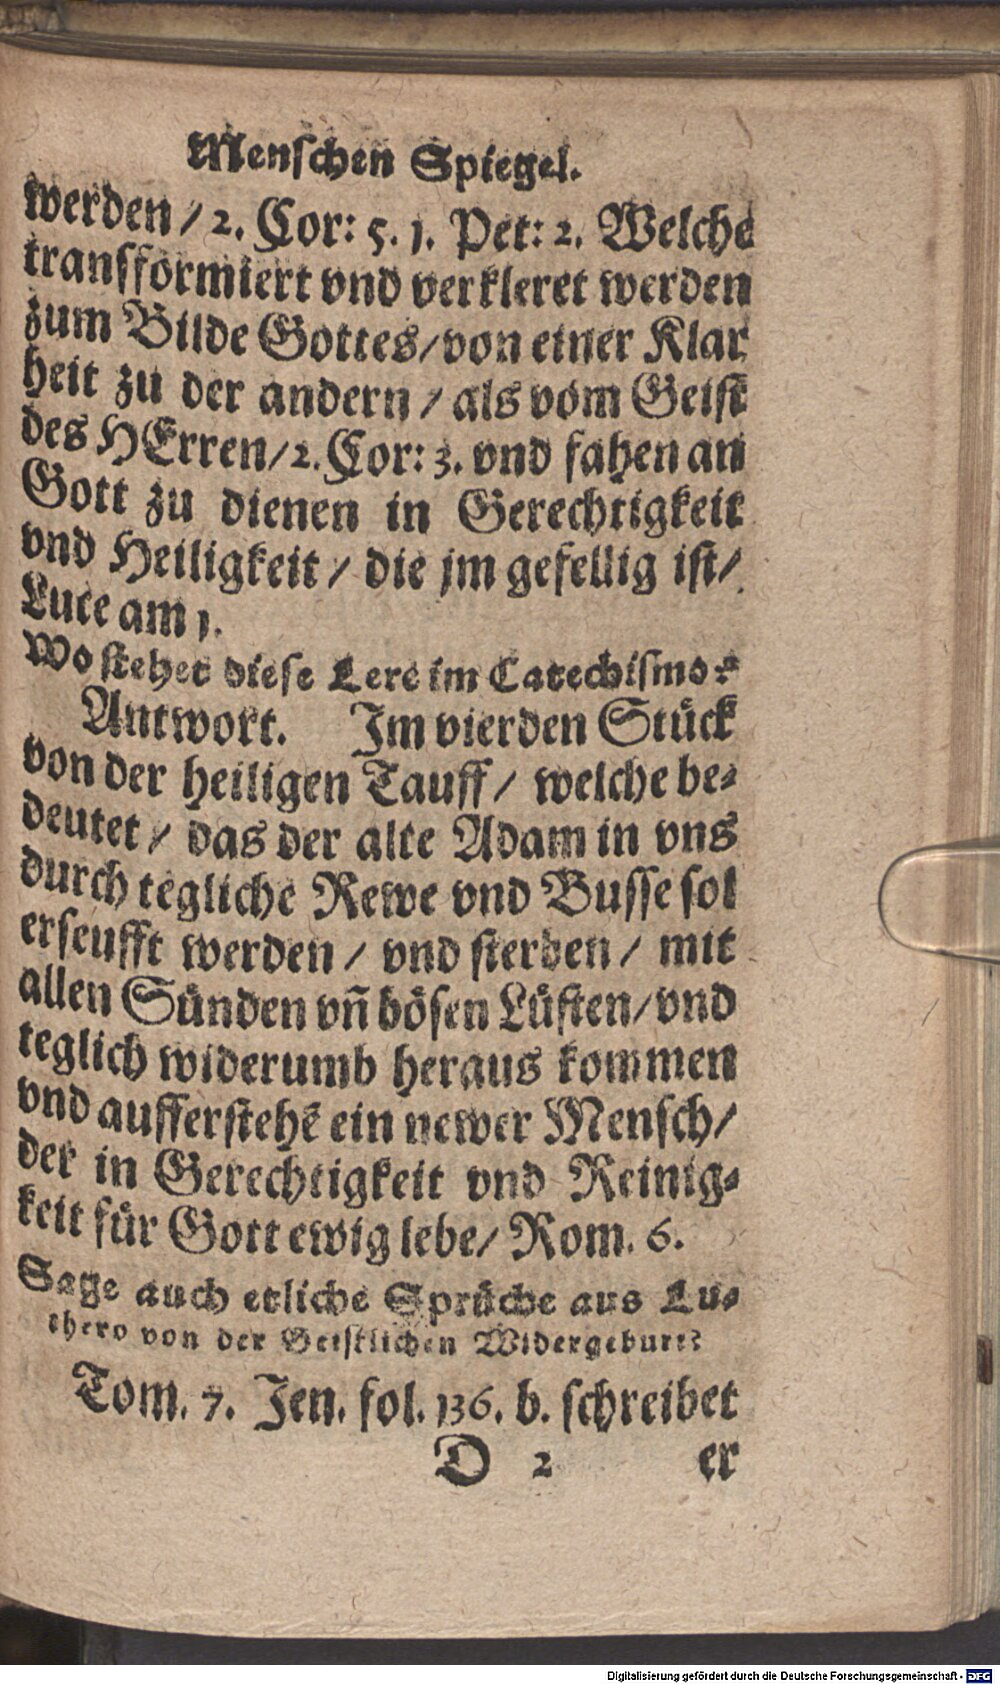 Menschen Spiegel.
werden / 2. Cor: 5. 1. Pet: 2. Welche
transformiert vnd verkleret werden
zum Bilde Gottes / von einer Klar
heit zu der andern / als vom Geist
des HErren / 2. Cor: 3. vnd fahen an
Gott zu dienen in Gerechtigkeit
vnd Heiligkeit / die jm gefellig ist /
Luce am 1.
Wo stehet diese Lere im Catechismo?
Antwort. Im vierden Stück
von der heiligen Tauff / welche be-
deutet / das der alte Adam in vns
durch tegliche Rewe vnd Busse sol
erseufft werden / vnd sterben / mit
allen Sünden vñ bösen Lüsten / vnd
teglich widerumb heraus kommen
vnd aufferstehē ein newer Mensch /
der in Gerechtigkeit vnd Reinig-
keit für Gott ewig lebe / Rom. 6.
Sage auch etliche Sprüche aus Lu-
thero von der Geistlichen Widergeburt?
Tom. 7. Jen. fol. 136. b. schreibet
D 2 er
Digitalisierung gefördert durch die Deutsche Forschungsgemeinschaft - DFG